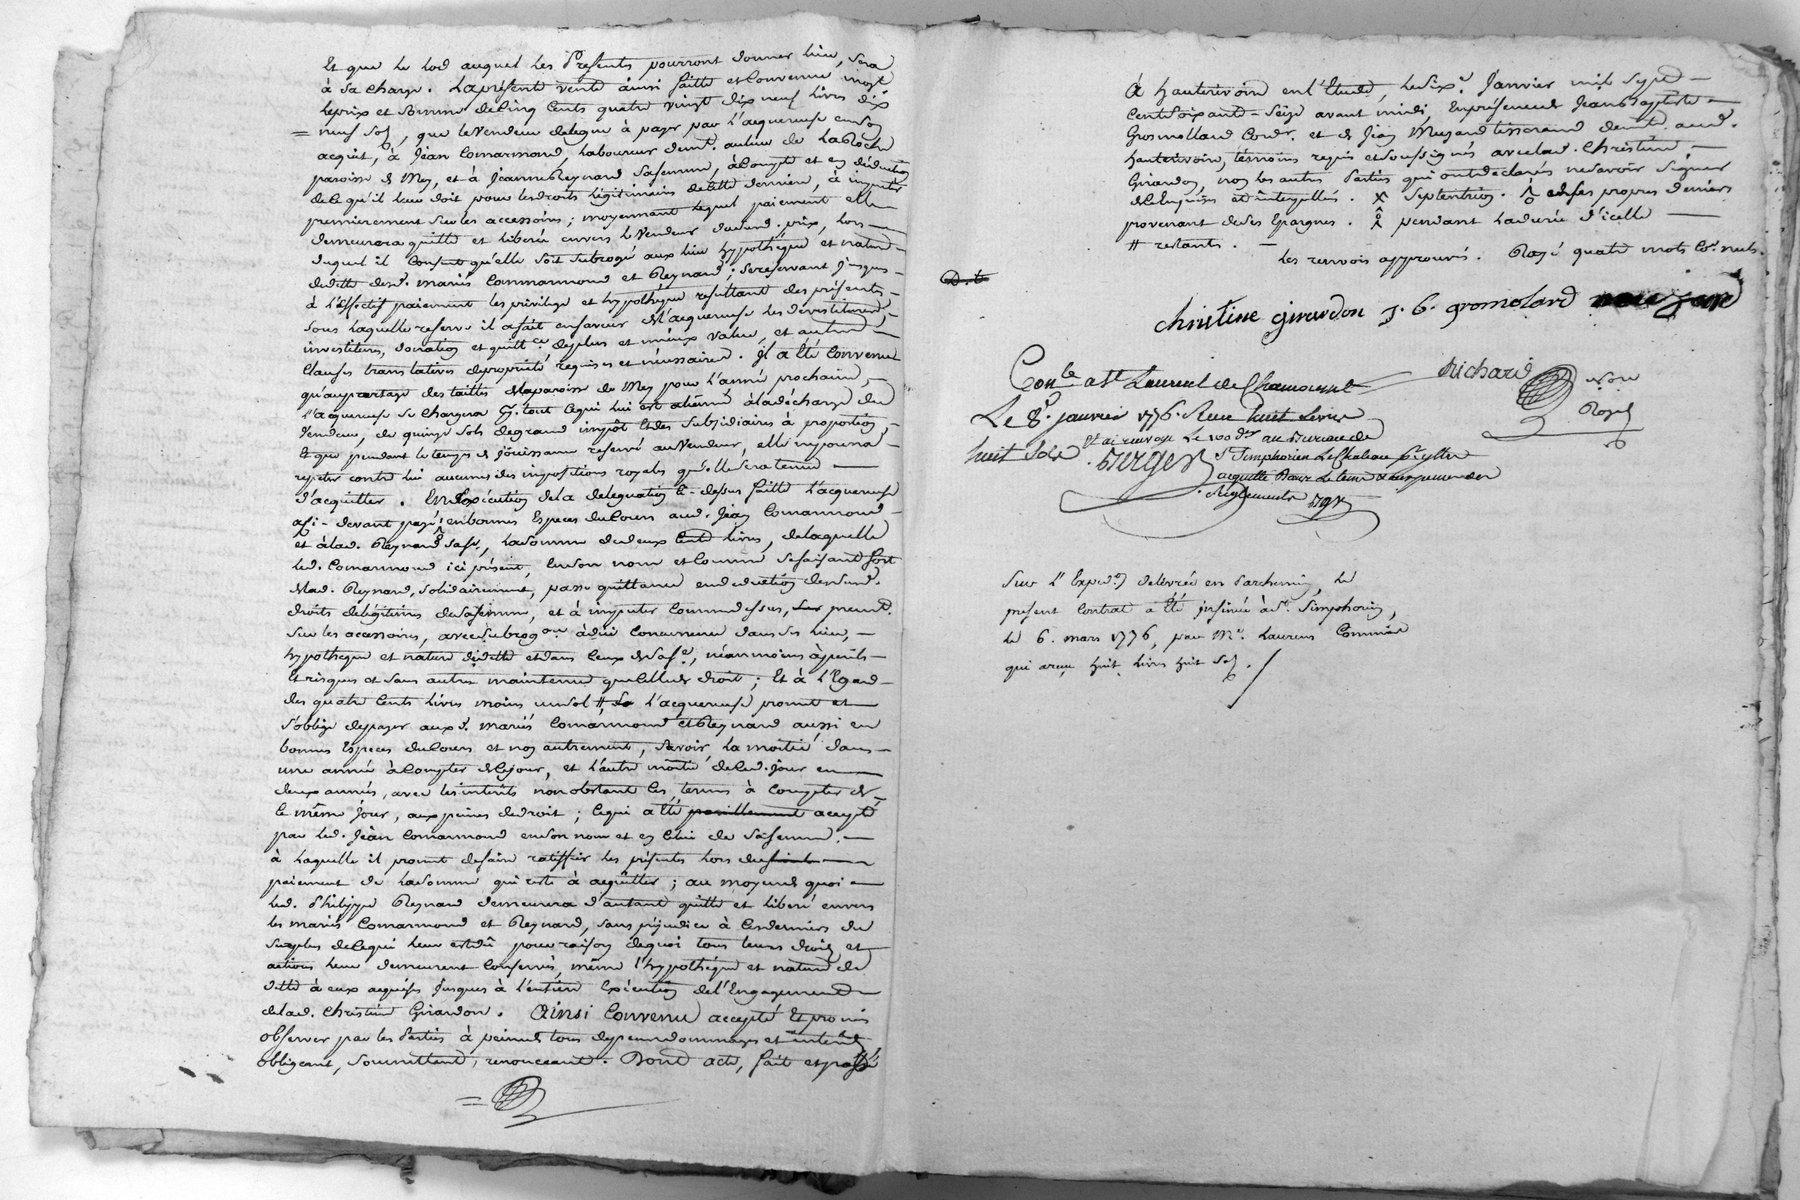 Et que le lod auquel les presents pourront donner lieu, sera
à sa charge. La présente vente ainsi faitte et convenue moy.t
le prix et somme de cinq cents quatre vingt dix neuf livres dix
neuf sols, que le vendeur delegue à payer par l'acquereuse en son
acquit, à Jean Comarmond, laboureur dem.t au lieu de
paroisse de Mey, et à Jeanne Reynard sa femme, à compte et en déduction
de ce qu'il leur doit pour les droits légitimaires de cette derniere, à imputer
premierement sur les accessoires; moyennant lequel paiement elle
demeurera quitte et libérée envers le vendeur dud. prix, lors
duquel il consent qu'elle soit subrogée aux lieu hypothéque et nature
de dette desd. mariés Commarmond et Reynard; se reservant jusques
à l'effectif paiement les privilege et hypothéque resultant des présentes
sous laquelle reserve il a fait en faveur de l'acquereuse les devestitures,
investitures, donation et quitt.ce de plus et mieux value, et autres
clauses translatives de propriété requises et nécessaires. Il a été convenu
qu'au partage des tailles de la paroisse de Mey pour l'année prochaine,
l'acquereuse se chargera p.r tout ce qui lui est aliéné à la décharge du
vendeur, de quinze sols de grand impôt et des subsidiaires à proportion,
Et que pendant le temps de jouissance reservé au vendeur, elle ne pourra
repeter contre lui aucunes des impositions royales qu'elle sera tenue
d'acquitter. En exécution de la delegation ci-dessus faitte l'acquereuse
a ci-devant payé en bonnes Especes du cours aud. Jean Comarmond
et à lad. Reynard sa fe., la somme de deux cents livres, de laquelle
led. Comarmond ici présent, en son nom et comme se faisant fort
de lad. Reynard, solidairement, passe quittance en deduction desd.
droits de légitime de sa femme, et à imputer comme dessus, premt.
sur les accessoires, avec subrogon. à dûe concurrence dans ses lieu,
hypotheque et nature de dette et dans ceux de sa fe., néanmoins à perils
et risques et sans autre maintenue que celle de droit; Et à l'Egard
des quatre cents livres moins un sol # l'acquereuse promet et
s'oblige de payer aux d. mariés Comarmond et Reynard aussi en
bonnes Especes du cours et non autrement, savoir la moitié dans
une année à compter de ce jour, et l'autre moitié de ced. jour en
deux années, avec les intérêts non obstant les termes à compter de
ce même jour, aux peines de droit; ce qui a été pareillement accepté
par led. Jean Comarmond en son nom et en celui de sa femme,
à laquelle il promet de faire ratiffier les présentes lors du
paiement de la somme qui reste à acquitter; au moyen de quoi
led. Philippe Reynard demeurera d'autant quitte et libéré envers
les mariés Comarmond et Reynard, sans préjudice à ces derniers du
surplus de ce qui leur est dû pour raison de quoi tous leurs droits et
actions leur demeurent conservés, même l'hypothéque et nature de
dette à eux acquises jusques à l'entiere Exécution de l'Engagement
de lad. Christine Girardon. Ainsi convenu accepté et promis
observer par les Parties à peine de tous depens dommages et intérêts
obligeant, soumettant, renonceant. Dont acte, fait et passé
À hauterivoire en l'Etude, le six.e Janvier mil sept
cent soixante-seize avant midi, En présence de Jean Baptiste
Gromollard Cordr. et de Jean Muzard tisserand demts. aud.
hauterivoire, témoins requis et soussignés avec lad. Christine
Girardon, non les autres Parties qui ont déclaré ne savoir signer
de ce enquises et interpellées. X Septentrion. de ses propres deniers
provenant de ses Epargnes. pendant la durée d'icelle
# restants.
les renvois approuvés. Rayé quatre mots co.e nuls.
D. t
christine girardon J. B. gromolard muzard
Richard
Nore
Royal
Con.lé a St Laurent de Chamousset
Le 8.e janvier 1776. Reçu huit Livres
huit Sols. Et ai renvoyé Le 100 der au Bureau de
Berger St Simphorien Le Chateau p.r y être
acquitté Dans Le tems
Reglements
Sur l'Expedon delivrée en Parchemin, le
present Contrat a été insinué à St. Simphorien,
le 6. mars 1776, par Mr. Laurens Commis
qui a reçu huit livres huit sols.